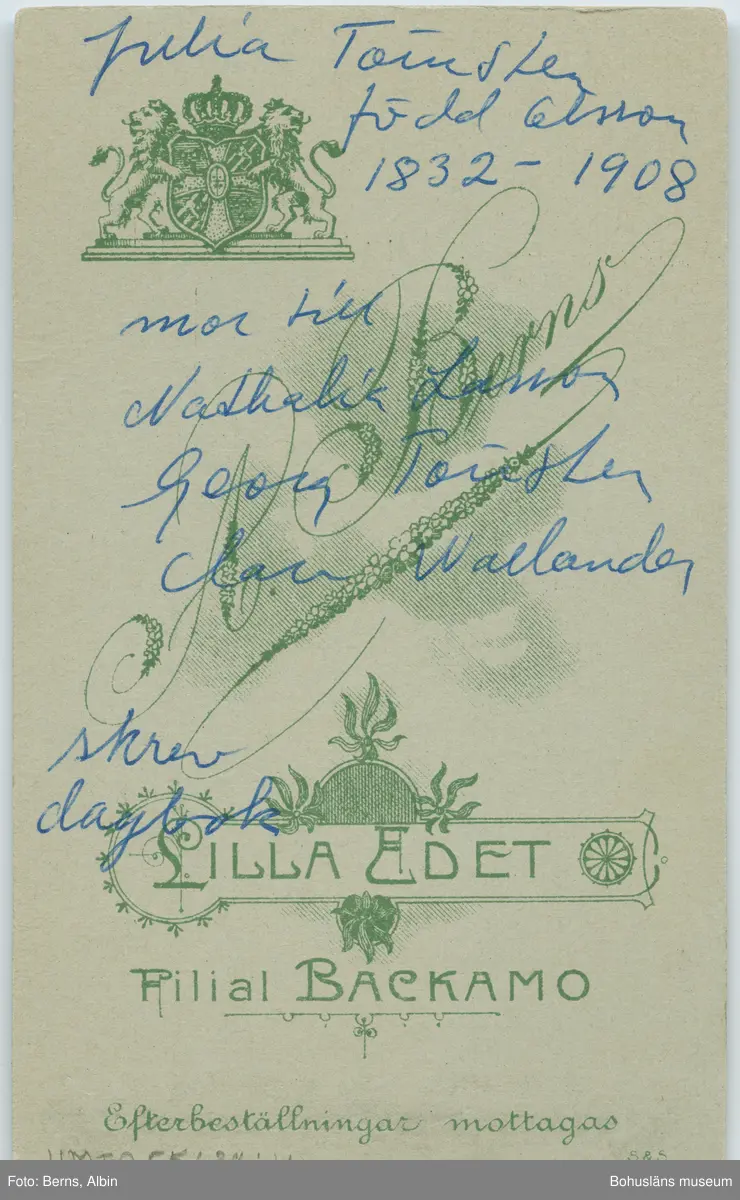 Julia Tornsten
född Olsson
1832 - 1908
A. Berns
mor till
Nathalia Larson
Georg Tornsten
Clara Wallander
skrev
dagbok
LILLA EDET
Filial BACKAMO
Efterbeställningar mottagas
S & S
Foto: Berns, Albin
Bohusläns museum